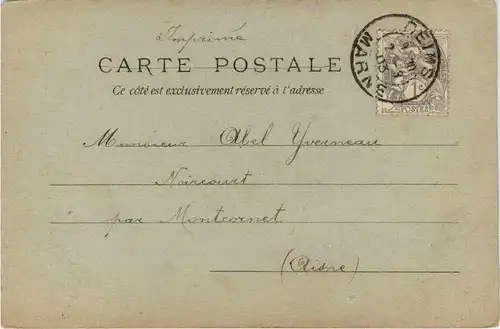 Imprimé
CARTE POSTALE
Ce côté est exclusivement réservé à l'adresse
REIMS
MARNE
1c
POSTES
Monsieur Abel Yverneau
Noircourt
par Montcornet
(Aisne)